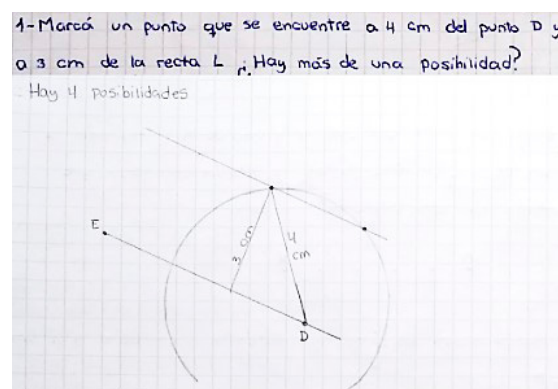 1-Marcá un punto que se encuentre a 4 cm del punto D y
a 3 cm de la recta L ¿Hay más de una posibilidad?
Hay 4 posibilidades
E
3 cm
4 cm
D